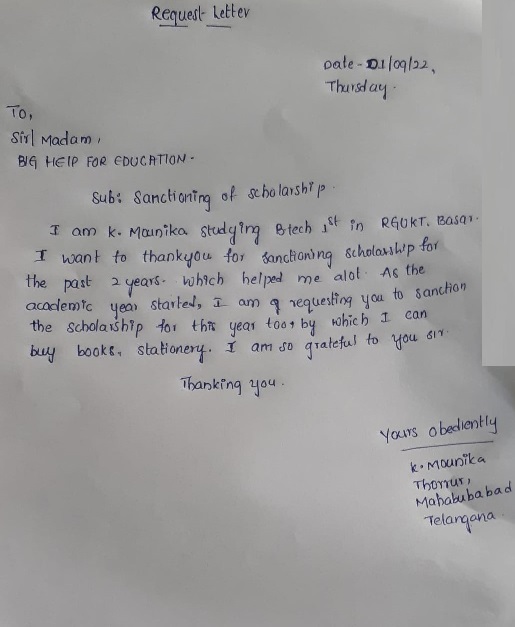 Request Letter
Date - 01/09/22,
Thursday.
To,
Sir/ Madam,
BIG HELP FOR EDUCATION.
Sub: Sanctioning of scholarship.
I am k. Mounika studying Btech 1st in RGUKT, Basar.
I want to thankyou for sanctioning scholarship for
the past 2 years. which helped me alot. As the
academic year started, I am requesting you to sanction
the scholarship for this year too, by which I can
buy books, stationery. I am so grateful to you sir.
Thanking you.
Yours obediently
k. Mounika
Thorrur,
Mahabubabad
Telangana.